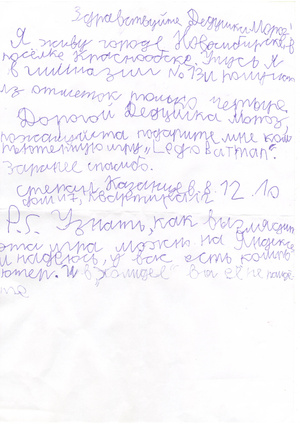 Здравствуйте Дедушка Мороз!
Я живу городе Новосибирске в
посёлке Краснообск. Учусь я
в гимназии №13и получаю
из отметок только четыре.
Дорогой Дедушка Мороз
пожалуйста подарите мне ком
пьютерную игру „Lego Batman".
Заранее спасибо.
степан Казанцев, 8. 12 10
дом 1, квартира
P.S. Узнать, как выглядит
эта игра можт на Яндексе
я надеюсь, у вас есть компь
ютер. И в „Холидее" вы её не найд
ёте